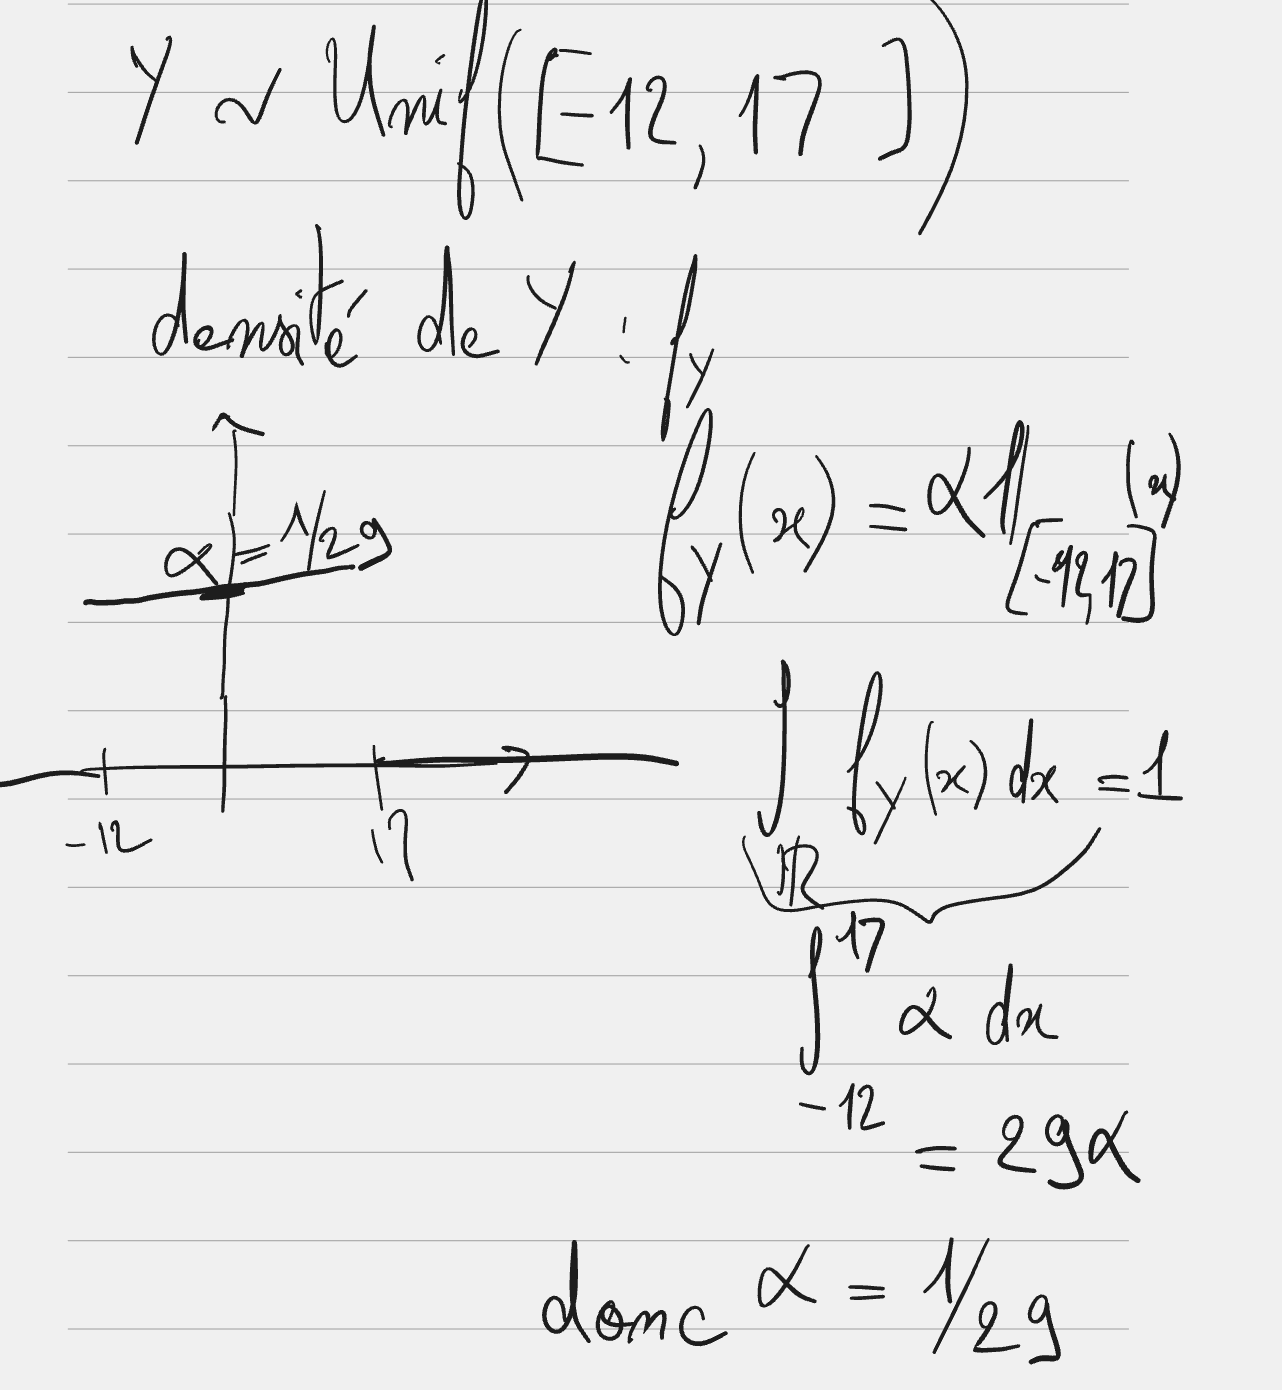 Y ~ Unif([-12, 17])
densité de Y : f_Y
f_Y(x) = α 𝟙_[-12, 17](x)
α = 1/29
-12 17
∫_ℝ f_Y(x) dx = 1
∫_{-12}^{17} α dx
= 29α
donc α = 1/29